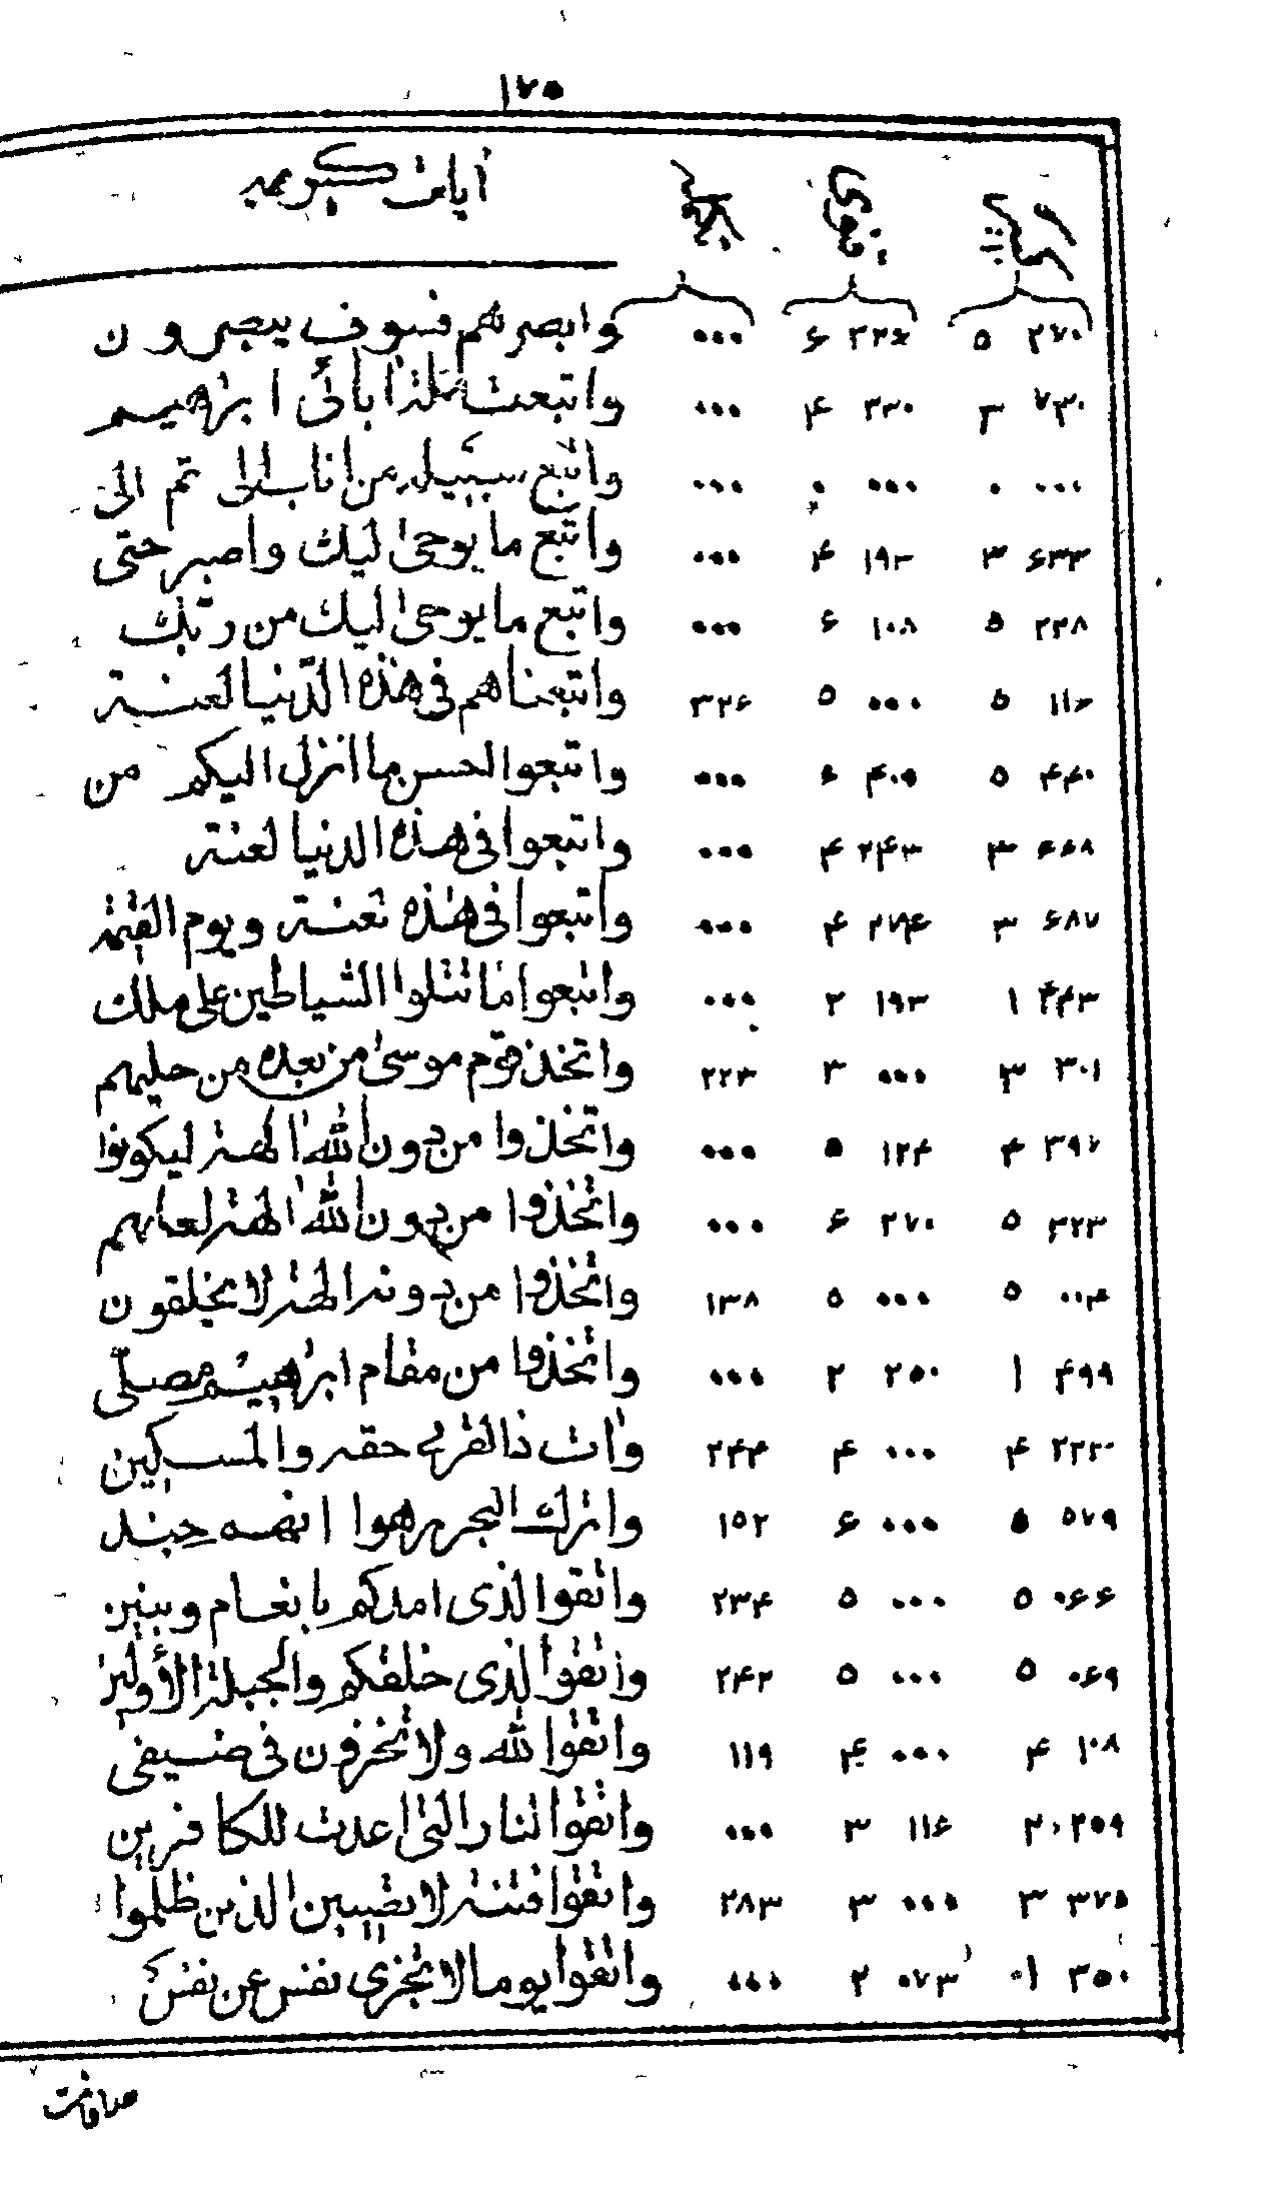 ١٧٥
آیات کریمه
٢٧٠ ٥ ٢٢٤ ۶ ٠٠٠ وابصرهم فسوف یبصرون
٧٣٠ ٣ ٢٣٠ ۴ ٠٠٠ واتبعت ملة اٰبائی ابرٰهیم
٠٠٠ ٠ ٠٠٠ ٠ ٠٠٠ واتبع سبیل من اناب الی ثم الی
۶٣٣ ٣ ١٩٣ ۴ ٠٠٠ واتبع ما یوحیٰ الیك واصبر حتی
٢٣٨ ٥ ١٠٨ ۶ ٠٠٠ واتبع ما یوحیٰ الیك من ربّك
١١۶ ٥ ٠٠٠ ٥ ٣٢۶ واتبعناهم فی هٰذه الدّنیا لعنة
۴۴٠ ٥ ۴٠٩ ۶ ٠٠٠ واتبعوا احسن ما انزل الیکم من
۶۶٨ ٣ ٢۴٣ ۴ ٠٠٠ واتبعوا فی هٰذه الدنیا لعنة
۶٨٧ ٣ ٢٧۴ ۴ ٠٠٠ واتبعوا فی هٰذه لعنة ویوم القیٰمة
۴۴٣ ١ ١٩٣ ٢ ٠٠٠ واتبعوا ما تتلوا الشیاطین علی ملك
٣٠١ ٣ ٠٠٠ ٣ ٢٢٣ واتخذ قوم موسیٰ من بعده من حلیهم
٣٩٧ ۴ ١٢۴ ٥ ٠٠٠ واتخذوا من دون اللّٰه اٰلهة لیکونوا
٣٢٣ ٥ ٢٧٠ ۶ ٠٠٠ واتخذوا من دون اللّٰه اٰلهة لعلهم
٠٠۴ ٥ ٠٠٠ ٥ ١٣٨ واتخذوا من دونه اٰلهة لا یخلقون
۴٩٩ ١ ٢٥٠ ٢ ٠٠٠ واتخذوا من مقام ابرٰهیم مصلّی
٢٢٣ ۴ ٠٠٠ ۴ ٢۴۴ واٰت ذالقربی حقه والمسکین
٥٧٩ ٥ ٠٠٠ ۶ ١٥٢ واترك البحر رهوا انهم جند
٠۶۶ ٥ ٠٠٠ ٥ ٢٣۴ واتقوا الذی امدکم بانعام وبنین
٠۶٩ ٥ ٠٠٠ ٥ ٢۴٢ واتقوا الذی خلقکم والجبلة الأولین
١٠٨ ۴ ٠٠٠ ۴ ١١٩ واتقوا اللّٰه ولا تخزون فی ضیفی
٢٥٩ ٢ ١١۶ ٣ ٠٠٠ واتقوا النار التی اعدت للکافرین
٣٧٥ ٣ ٠٠٠ ٣ ٢٨٣ واتقوا فتنة لا تصیبن الذین ظلموا
٣٥٠ ١ ٠٧٣ ٢ ٠٠٠ واتقوا یوما لا تجزی نفس عن نفس